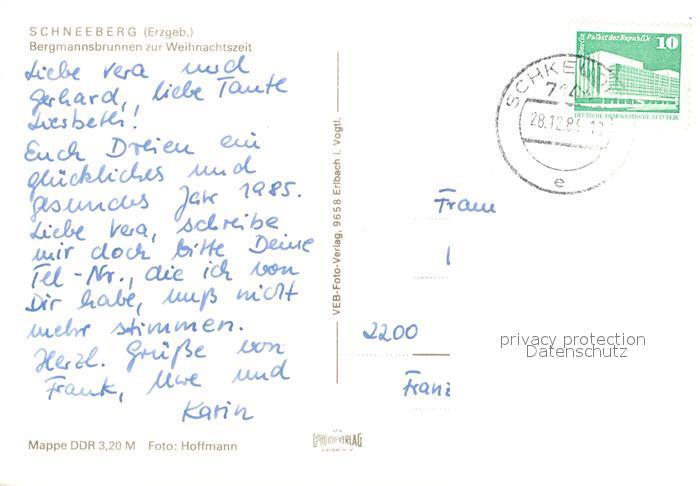 SCHNEEBERG (Erzgeb.)
Bergmannsbrunnen zur Weihnachtszeit
Liebe Vera und
Gerhard, liebe Tante
Liesbeth!
Euch Dreien ein
glückliches und
gesundes Jahr 1985.
Liebe Vera, schreibe
mir doch bitte Deine
Tel-Nr., die ich von
Dir habe, muß nicht
mehr stimmen.
Herzl. Grüße von
Frank, Uwe und
Karin
Mappe DDR 3,20 M Foto: Hoffmann
VEB-Foto-Verlag, 9658 Erlbach i. Vogtl.
FOTO-VERLAG
ERLBACH V.
Berlin, Palast der Republik
10
DEUTSCHE DEMOKRATISCHE REPUBLIK
28.12.84
e
Frau
2200
Franz
privacy protection
Datenschutz